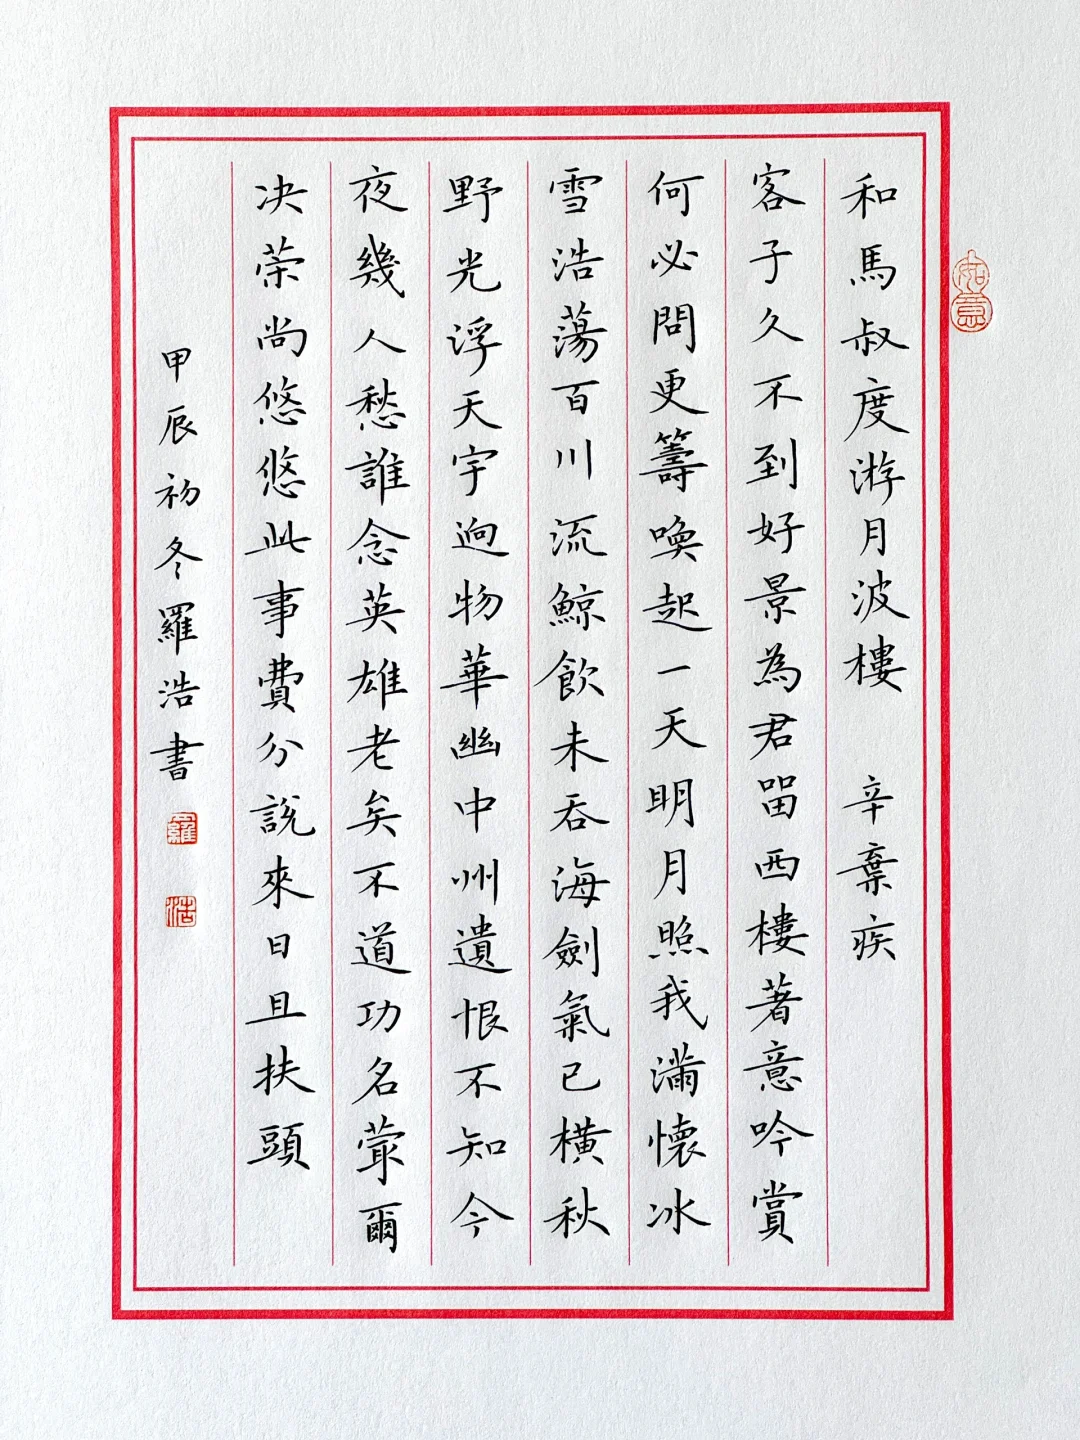 和馬叔度游月波樓 辛棄疾
客子久不到好景為君畱西樓著意吟賞
何必問更籌喚起一天明月照我滿懷冰
雪浩蕩百川流鯨飲未吞海劍氣已橫秋
野光浮天宇迥物華幽中州遺恨不知今
夜幾人愁誰念英雄老矣不道功名蕞爾
决策尚悠悠此事費分說來日且扶頭
甲辰初冬羅浩書
羅
浩
如意